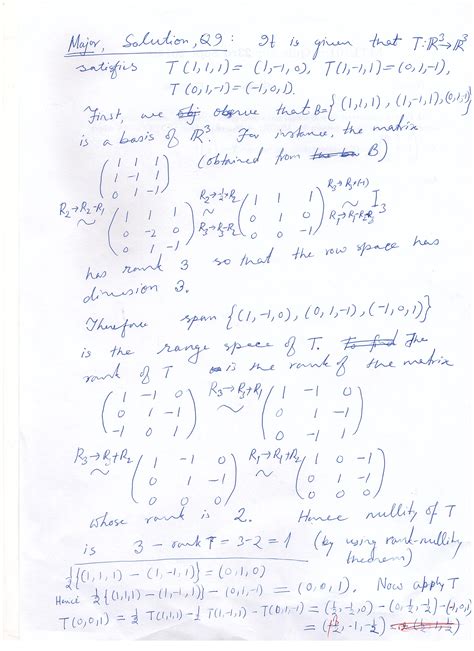 Major, Solution, Q9: It is given that T: ℝ³→ℝ³
satisfies T(1,1,1) = (1,-1,0), T(1,-1,1) = (0,1,-1),
T(0,1,-1) = (-1,0,1).
First, we observe that B={(1,1,1), (1,-1,1), (0,1,-1)}
is a basis of ℝ³. For instance, the matrix
(1 1 1
1 -1 1
0 1 -1) (obtained from B)
R₂→R₂-R₁ ~ (1 1 1
0 -2 0
0 1 -1) R₂→-½R₂ R₃→R₃-R₂ ~ (1 1 1
0 1 0
0 0 -1) R₃→R₃×(-1) ~ I₃
has rank 3 so that the row space has
dimension 3.
Therefore span {(1,-1,0), (0,1,-1), (-1,0,1)}
is the range space of T. The
rank of T is the rank of the matrix
(1 -1 0
0 1 -1
-1 0 1) R₃→R₃+R₁ ~ (1 -1 0
0 1 -1
0 -1 1)
R₃→R₃+R₂ ~ (1 -1 0
0 1 -1
0 0 0) R₁→R₁+R₂ ~ (1 0 -1
0 1 -1
0 0 0)
whose rank is 2. Hence nullity of T
is 3 - rank T = 3-2 = 1 (by using rank-nullity
theorem)
½{(1,1,1) - (1,-1,1)} = (0,1,0)
Hence ½{(1,1,1) - (1,-1,1)} - (0,1,-1) = (0,0,1). Now apply T
T(0,0,1) = ½ T(1,1,1) - ½ T(1,-1,1) - T(0,1,-1) = (½, -½, 0) - (0, ½, -½) - (-1,0,1)